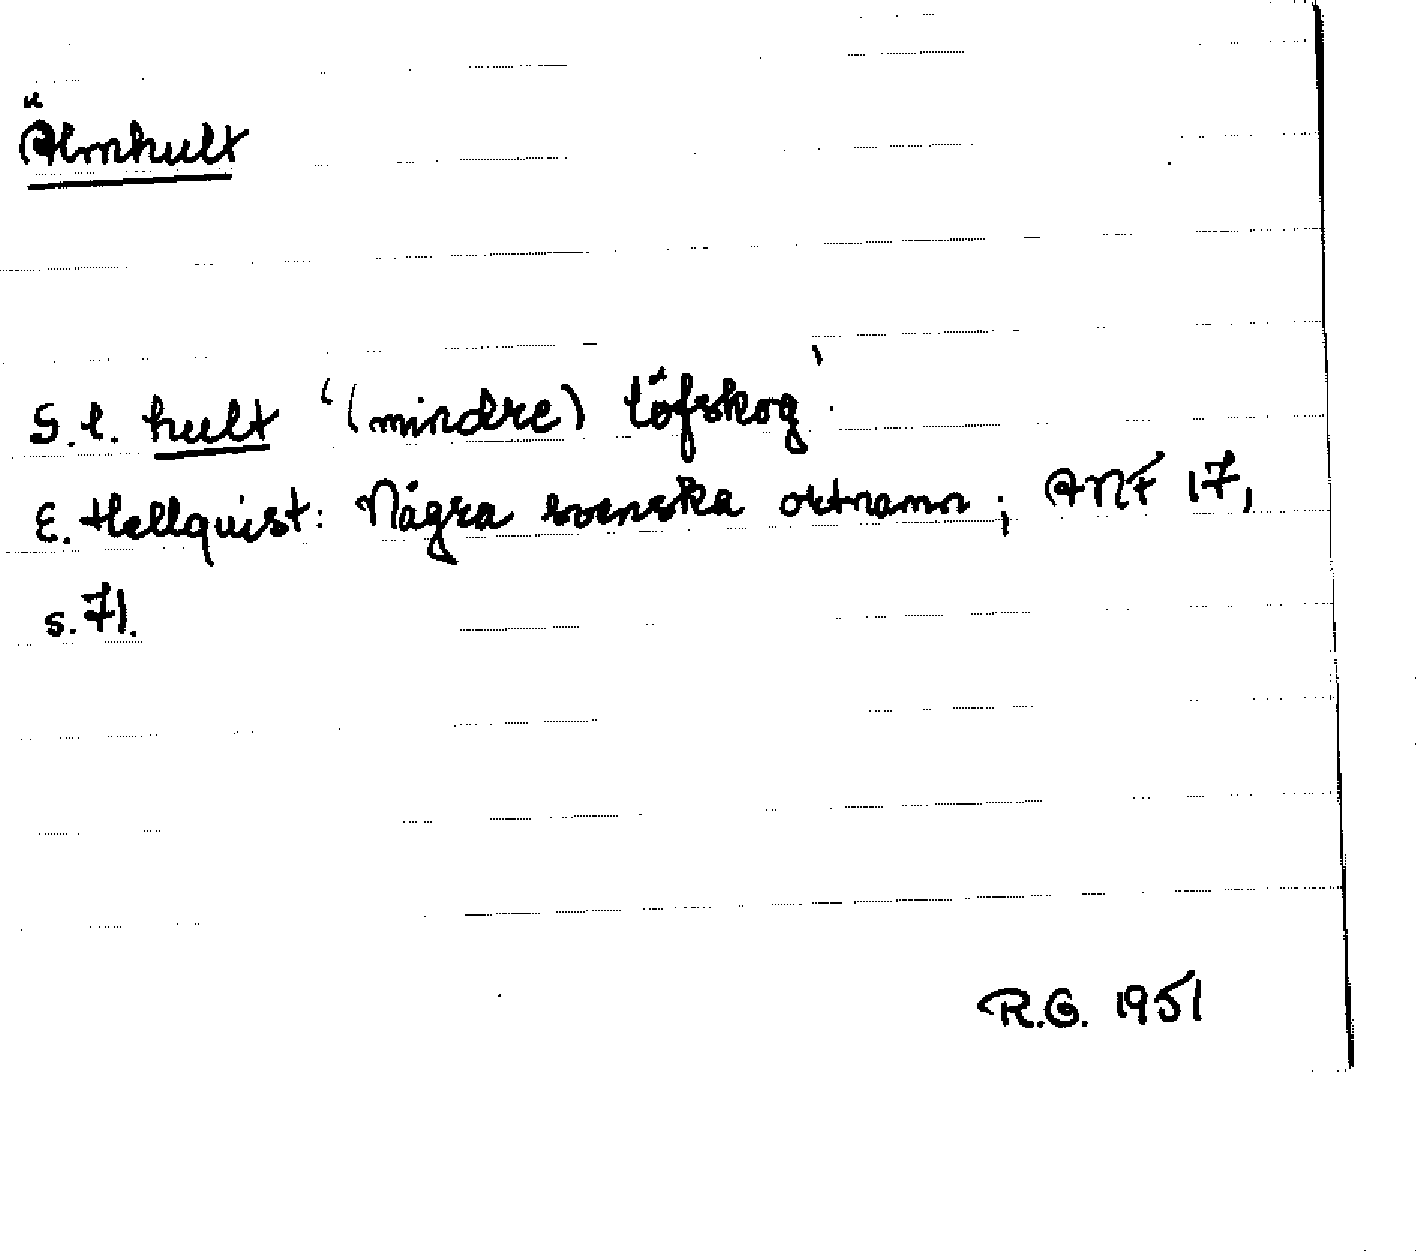 Älmhult
S.l. hult '(mindre) löfskog'.
E. Hellquist: Några svenska ortnamn; ANF 17,
s. 71.
R.G. 1951